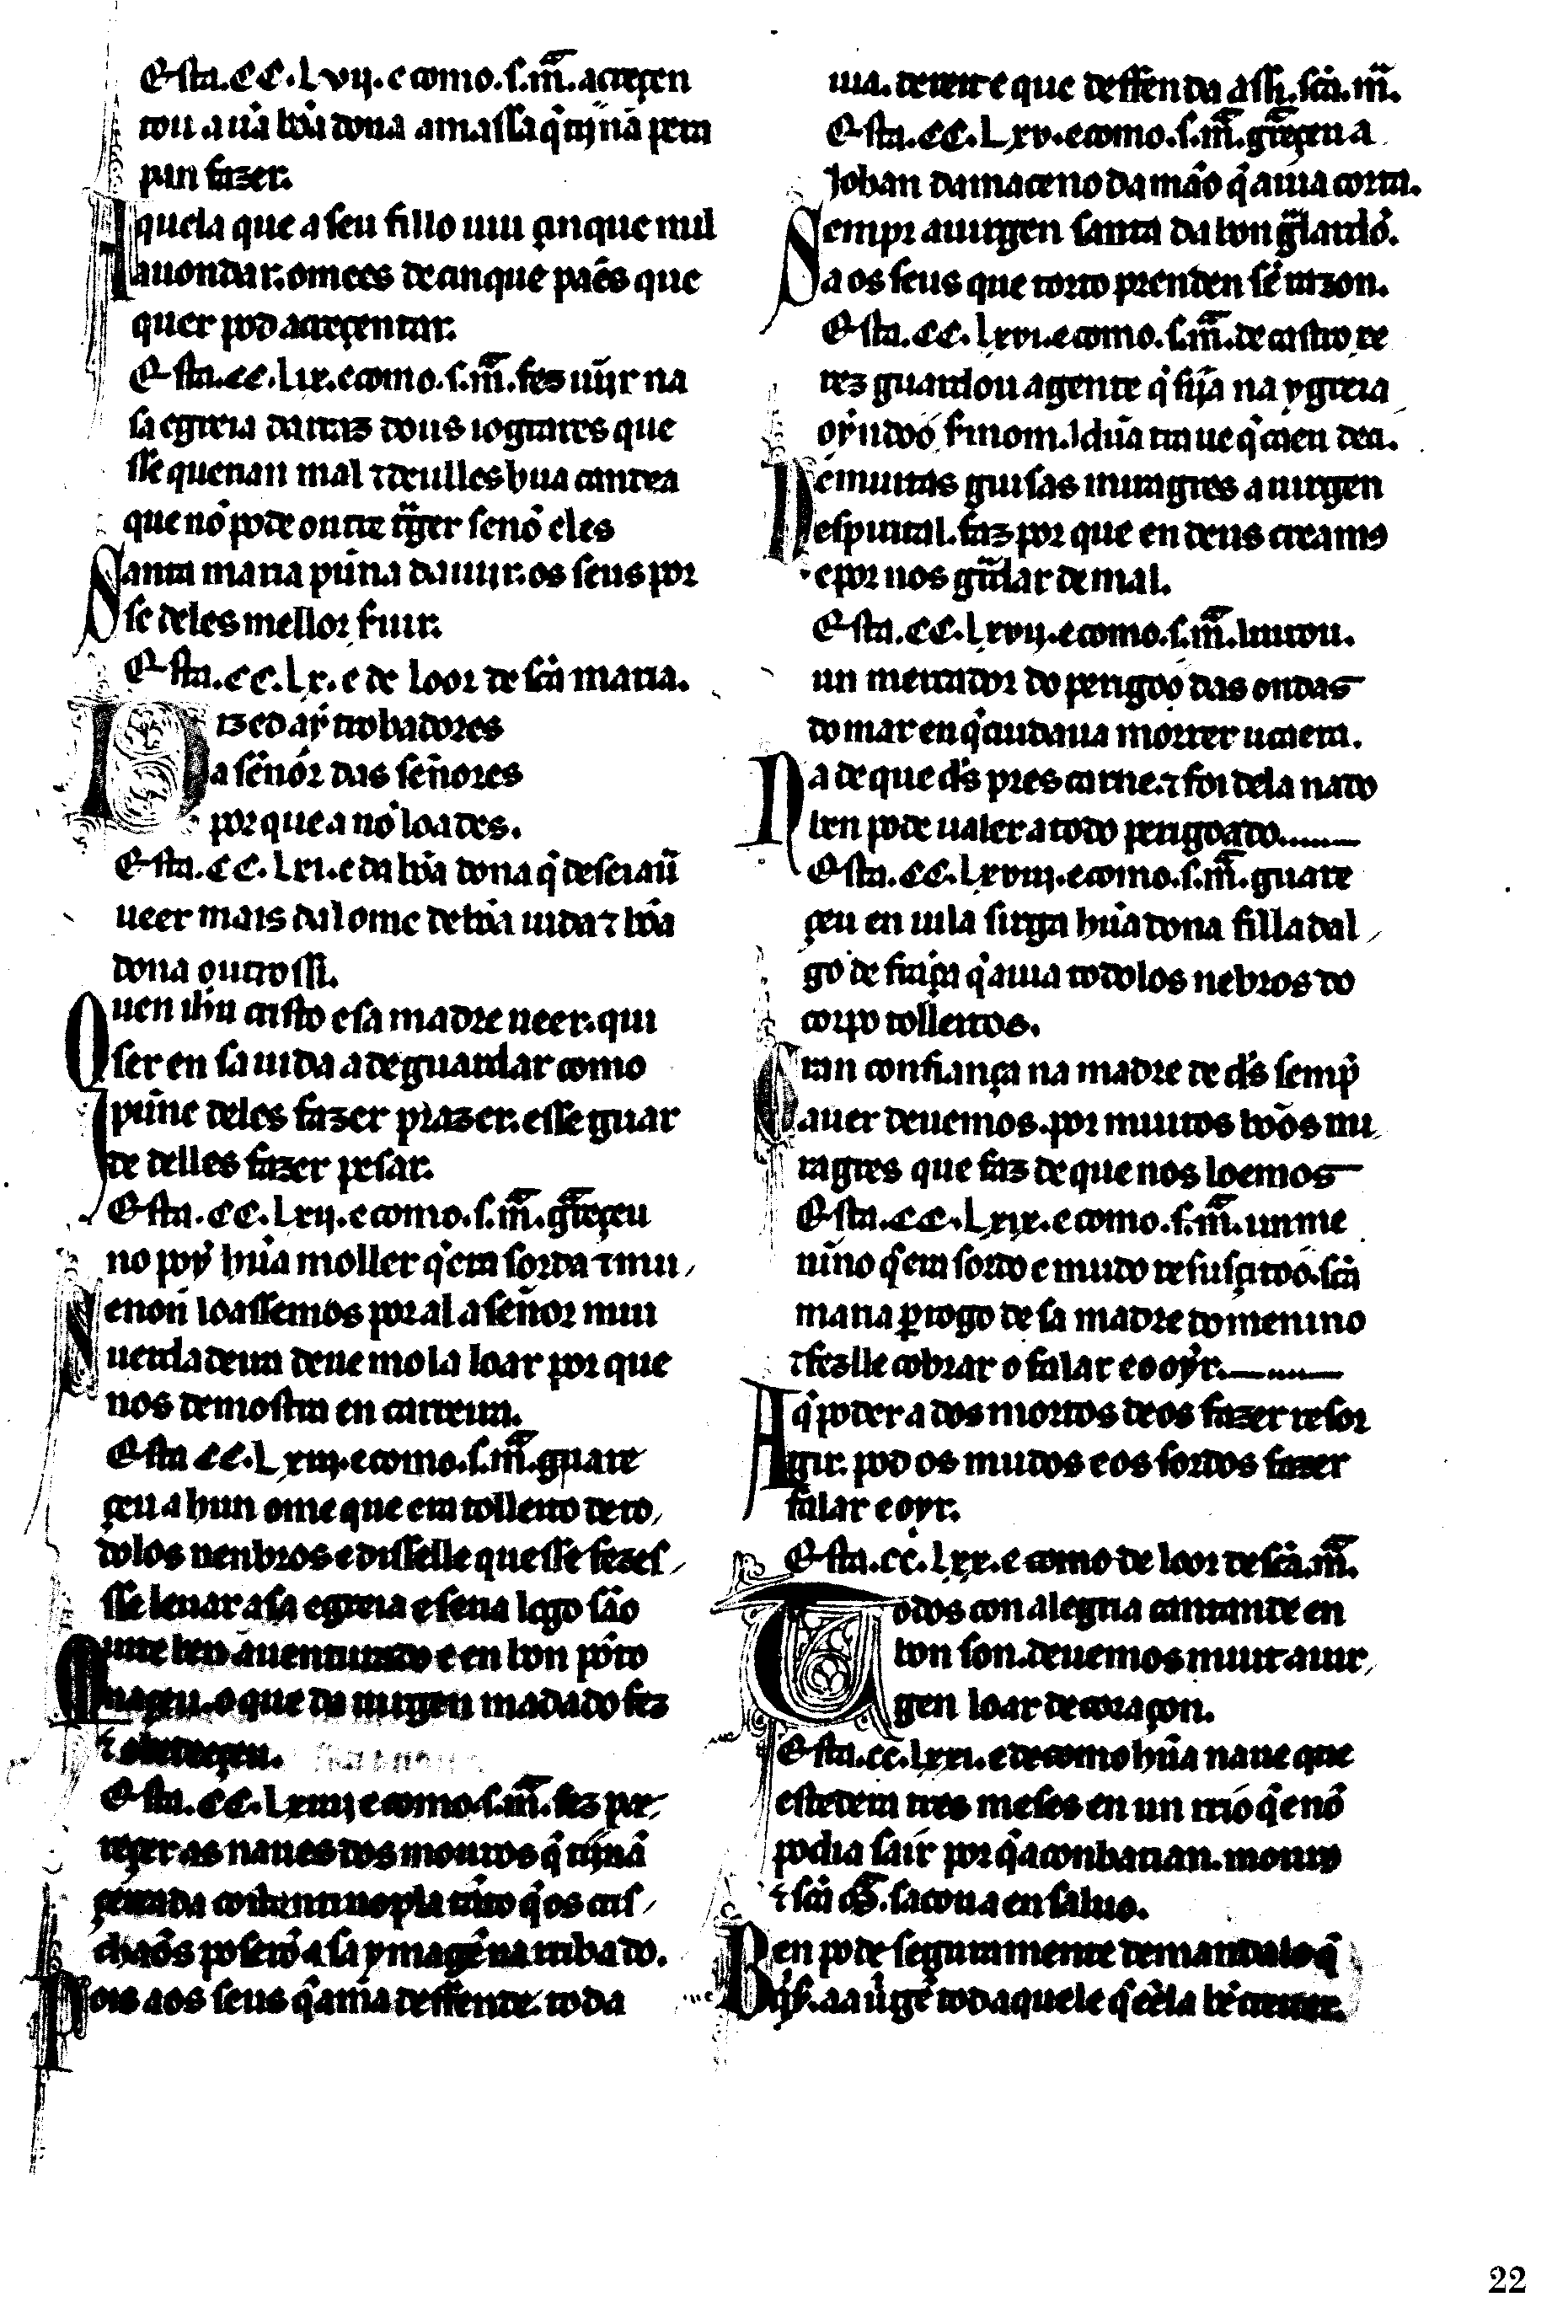 Esta.CC.Lvij.e como.s.m̃a.acreçen
tou a ũa bõa dona a massa q̃ tijnã pera
pan fazer.
Aquela que a seu fillo uiu çinque mil
auondar. omees de cinque pães que
quer pod acreçentar.
Esta.CC.Lix.e como.s.m̃a.fez uĩjr na
sa egreia darraz dous iograres que
sse querian mal ⁊ deulles hua candea
que nõ pode outre tr̃ager senõ eles
Santa maria pũna dauijr. os seus por
se deles mellor ſuir.
Esta.CC.Lx.e de loor de sc̃a maria.
Dized aỹ trobadores
a sẽnor das señores
por que a nõ loades.
Esta.CC.Lxi.e da bõa dona q̃ deseiaũ
ueer mais dal ome de bõa uida ⁊ bõa
dona outrossi.
Quen ih̃u cristo e sa madre ueer. qui
ser en sa uida a de guardar como
pũne deles fazer prazer. esse guar
de delles fazer pesar.
Esta.CC.Lxij.e como.s.m̃a.g̃reçeu
no poỹ hũa moller q̃ era sorda ⁊ mu
Se non loassemos por al a señor mui
uerdadeira deuemola loar por que
nos demostra en carreira.
Esta CC.Lxiij.e como.s.m̃a.guare
çeu a hun ome que era tolleito de to
dolos nenbros e disselle que sse fezes
sse leuar a sa egreia e seria logo são
Muite ben auenturado e en bon põto
naçeu. o que da uirgen mãdado fez
⁊ obedeeçeu.
Esta.CC.Lxiiij e como.s.m̃a.fez pe
reçer as naues dos mouros q̃ tijnã
çercada costantinopla tãto q̃ os cris
chaõs poserõ a sa ymagẽ na riba do.
Pois aos seus q̃ ama deffende. toda
uia. dereit e que deffenda assi.sc̃a.m̃.
Esta.CC.Lxv.e como.s.m̃a.g̃reçeu a
Johan damaceno da mão q̃ auia corta.
Sempr a uirgen santa da bon g̃alardõ.
a os seus que torto prenden sẽ razon.
Esta.CC.Lxvi.e como.s.m̃a.de castro, re
rez guardou a gente q̃ sija na ygreia
oỹndo ó sermom. Idũa traue q̃ caeu deci.
De muitas guisas miragres a uirgen
espirital. faz por que en deus creamꝯ
e por nos g̃ardar de mal.
Esta.CC.Lxvij.e como.s.m̃a.liurou.
un mercador do perigóo das ondas
do mar en q̃ cuidaua morrer u caera.
A de que ds̃ pres carne. ⁊ foi dela nado
ben pode ualer a todo perigoado
Esta.CC.Lxviij.e como.s.m̃a.guare
çeu en uila sirga hũa dona filla dal
go de frãça q̃ auia todolos nebros do
corpo tolleitos.
Gran confiança na madre de ds̃ semp̃
auer deuemos. por muitos bõos mi
ragres que faz de que nos loemos
Esta.CC.Lxix.e como.s.m̃a.un me
nĩno q̃ era sordo e mudo resusçitoó.sc̃a
maria ꝑ rogo de sa madre do menino
⁊ fezlle cobrar o falar e o oỹr.
A q̃ poder a dos mortos de os fazer resor
gir. pod os mudos e os sordos fazer
falar e oyr.
Esta.CC.Lxx.e como de loor de sc̃a.m̃a.
Todos con alegria cantande en
bon son. deuemos muit a uir
gen loar de coraçon.
Esta.CC.Lxxi.e de como hũa naue que
estedera tres meses en un rrió q̃ enõ
podia sair por q̃ a conbatian. mourꝯ
⁊ sc̃a m̃a. sacoua en saluo.
Ben pode seguramente demandalo q̃
q̃s. a a ũgẽ todaquele q̃ eẽla bẽ creuer.
22